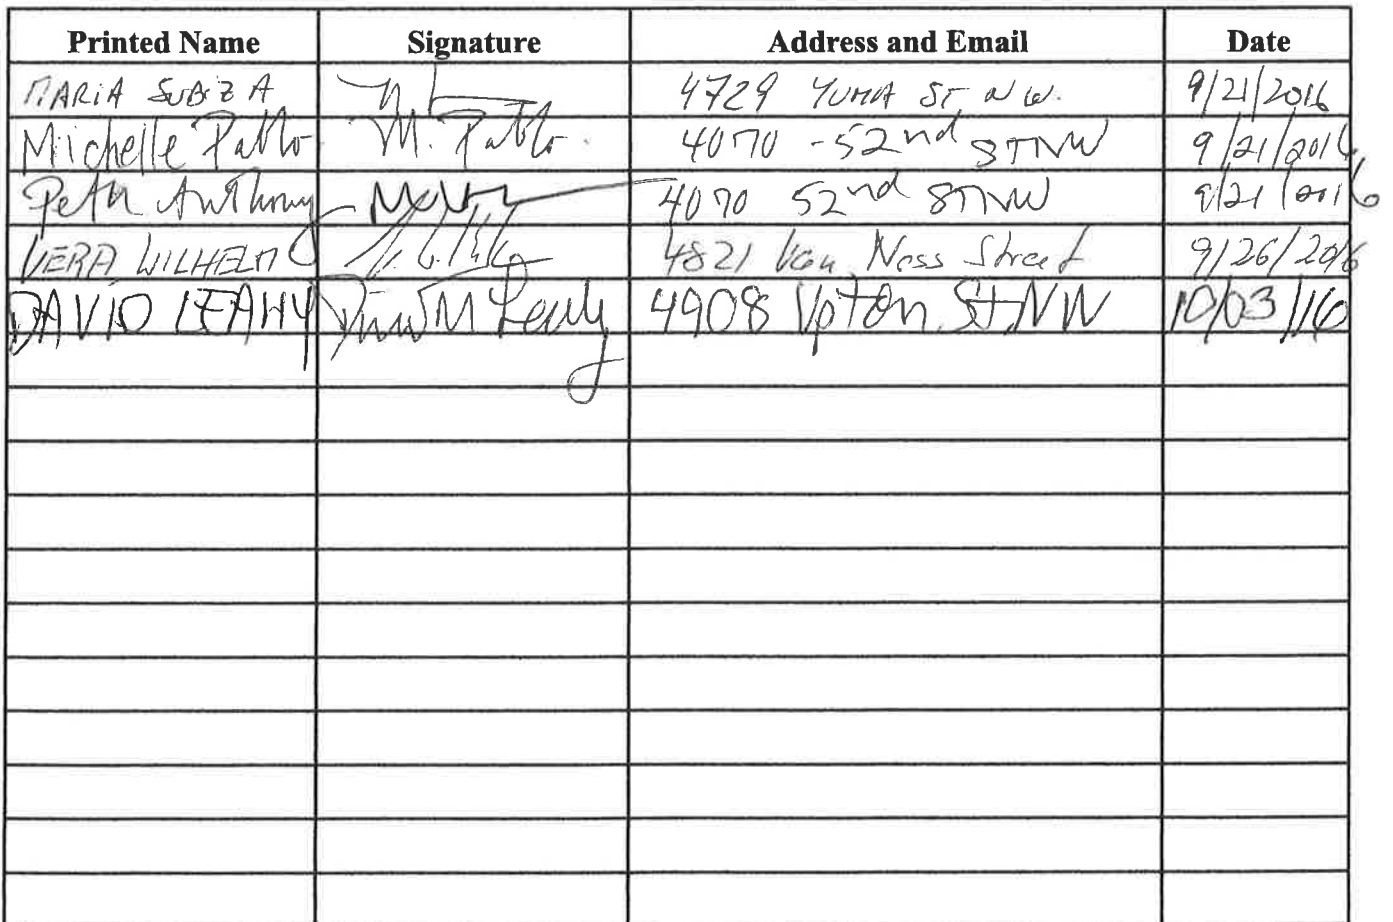 Printed Name Signature Address and Email Date
MARIA SUBIZA 4729 YUMA ST, NW. 9/21/2016
Michelle Pablo M. Pablo 4070 - 52nd STNW 9/21/2016
Anthony 4070 52nd STNW 9/21/2016
VERA WILHELM 4821 Van Ness Street 9/26/2016
DAVID LEAHY David M Leahy 4908 Upton St, NW 10/03/16